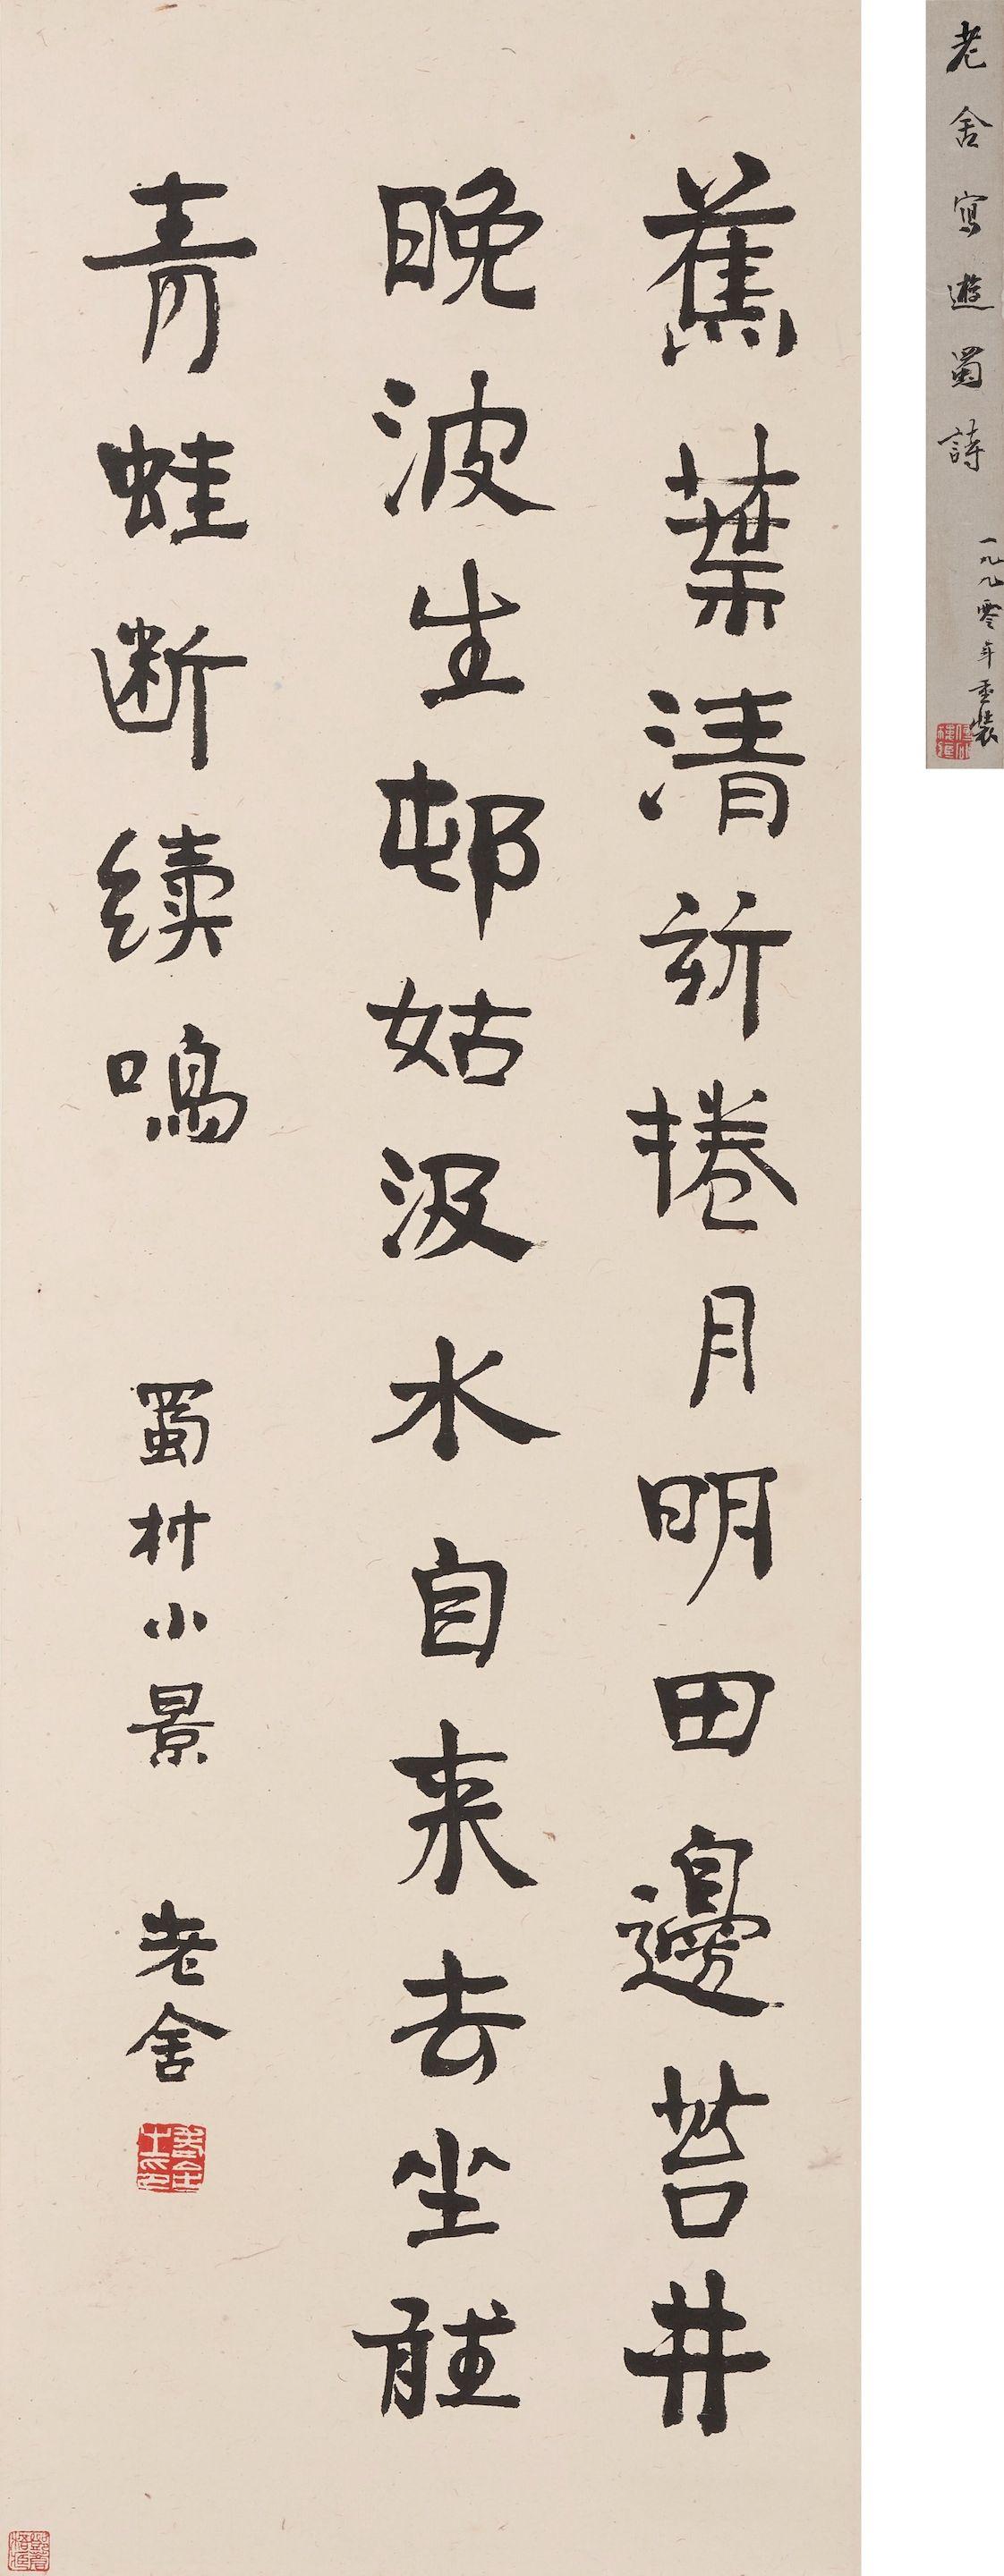 蕉葉清新捲月明田邊苔井
晚波生邨姑汲水自来去坐聽
青蛙断續鳴 蜀村小景 老舍
老舍寫遊蜀詩
一九九零年重裝